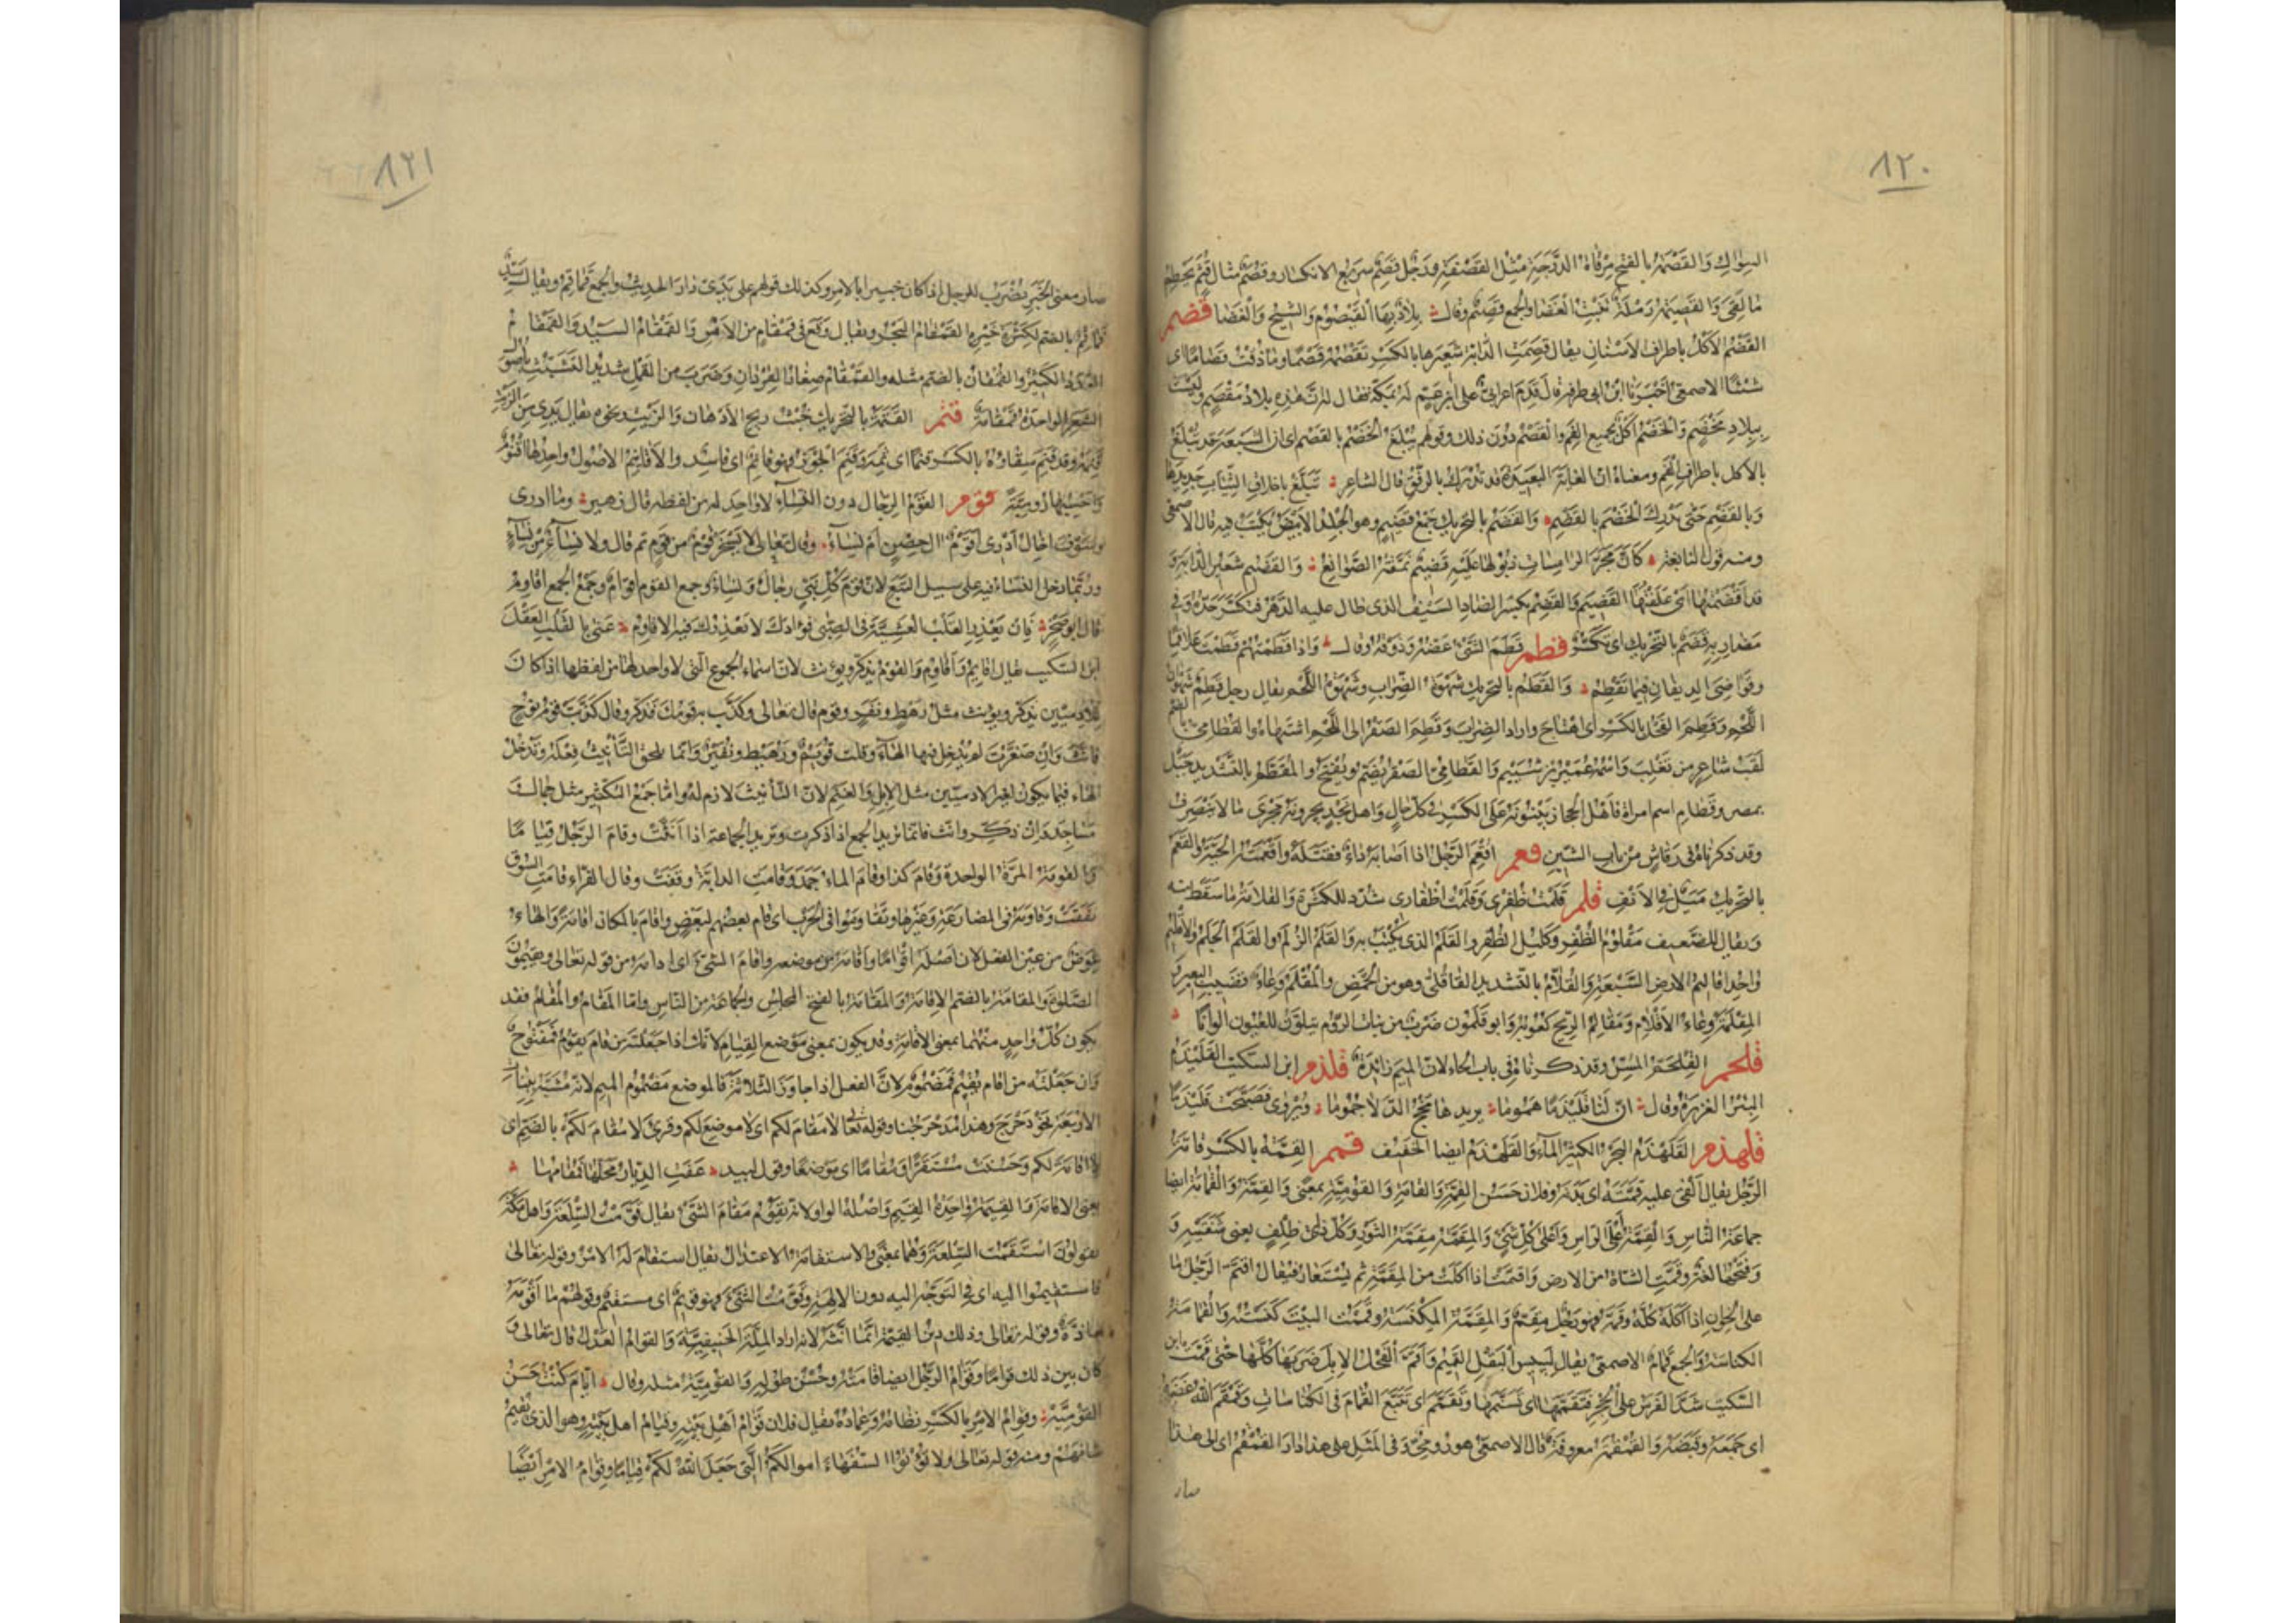 ٨٢٠
السواك والقصمة بالفتح مرقاة الدرجة مثل القصفة ورجل قصم سريع الانكسار وقصم مثال قثم يحطم
ما لقى والقصيمة رملة تنبت الغضا والجمع قصيم وقال بلاد بها القيصوم والشيح والغضا قضم
القضم الاكل باطراف الاسنان يقال قضمت الدابة شعيرها بالكسر تقضمه قضما وما ذقت قضاما اى
شئا الاصمعى اخبرنا ابن ابى طرفة قال قدم اعرابى على ابن عم له بمكة فقال له ان هذه بلاد مقضم وليست
ببلاد مخضم والخضم اكل بجميع الفم والقضم دون ذلك وقولهم يبلغ الخضم بالقضم اى ان الشبعة قد تبلغ
بالاكل باطراف الفم ومعناه ان الغاية البعيدة قد تدرك بالرفق قال الشاعر تبلغ باخلاق الثياب جديدها
وبالقضم حتى تدرك الخضم بالقضم والقضم بالتحريك جمع قضيم وهو الجلد الابيض يكتب فيه قال الاصمعى
ومنه قول النابغة كان مجر الرامسات ذيولها عليه قضيم نمقته الصوانع والقضيم شعير الدابة و
قد اقضمتها اى علفتها القضيم والقضم بكسر الضاد السيف الذى طال عليه الدهر فتكسر حده وفى
مضاربه قضم بالتحريك اى تكسر قطم قطم الشئ عضه وذوقه وقال واذا قطمتهم قطمت علاقما
وقواضى الذيفان فيما تقطم والقطم بالتحريك شهوة الضراب وشهوة اللحم يقال رجل قطم شهوان
اللحم وقطم الفحل بالكسر اى اهتاج واراد الضراب وقطم الصقر الى اللحم اشتهاه والقطامى بالضم
لقب شاعر من تغلب واسمه عمير بن شييم والقطامى الصقر يضم ويفتح والمقطم بالتشديد جبل
بمصر وقطام اسم امراة فاهل الحجاز يبنونه على الكسر فى كل حال واهل نجد يجرونه مجرى ما لا ينصرف
وقد ذكرناه فى رقاش من باب الشين قعم اقعم الرجل اذا اصابه داء فقتله واقعمته الحية والقعم
بالتحريك ميل فى الانف قلم قلمت ظفرى وقلمت اظفارى شدد للكثرة والقلامة ما سقط منه
ويقال للضعيف مقلوم الظفر وكليل الظفر والقلم الذى يكتب به والقلم الزلم والقلم الجلم والاقليم
واحد اقاليم الارض السبعة والقلام بالتشديد القاقلى وهو من الحمض والمقلم وعاء قضيب البعير و
المقلمة وعاء الاقلام ومقالم الريح كعوبه وابو قلمون ضرب من ثياب الروم يتلون للعيون الوانا
قلحم القلحم المسن وقد ذكرناه فى باب الحاء لان الميم زائدة قلذم ابن السكيت القليذم
البئر الغزيرة وقال ان لنا قليذما هموما يزيدها مخج الدلا جموما ويروى قد صبحت قليذما
قلهذم القلهذم البحر الكثير الماء والقلهذم ايضا الخفيف قمم القمة بالكسر قامة
الرجل يقال القى عليه قمته اى بدنه وفلان حسن القمة والقامة والقومية بمعنى والقمة والقمامة ايضا
جماعة الناس والقمة اعلى الراس واعلى كل شئ والمقمة مقمة الثور وكل ذى ظلف يعنى شفتيه و
وفتحها لغة وقمت الشاة من الارض واقتمت اذا اكلت من المقمة ثم يستعار فيقال اقتم الرجل ما
على الخوان اذا اكله كله وقمه فهو رجل مقم والمقمة المكنسة وقممت البيت كنسته والقمامة
الكناسة والجمع قمام الاصمعى يقال ليبيس البقل القميم واقم الفحل الابل ضربها كلها حتى قمت ابن
السكيت شد الفرس على الحجر فتقممها اى تسنمها وتقمم اى تتبع القمام فى الكناسات وقمقم الله عصبه
اى جمعه وقبضه والقمقمة معروفة قال الاصمعى هو رومى وفى المثل على هذا دار القمقم اى الى هذا
صار
٨٢١
صار معنى الخبر يضرب للرجل اذا كان خبيرا بالامر وكذلك قولهم على يدى دار الحديث والجمع قماقم ويقال سيد
قماقم بالضم لكثرة خيره القمقام البحر ويقال وقع فى قمقام من الامر والقمقام السيد والقمقام
العدد الكثير والقمقمان بالضم مثله والقمقام صغار القردان وضرب من القمل شديد التشبث باصول
الشعر الواحدة قمقامة قنم القنمة بالتحريك خبث ريح الادهان والزيت ونحوه يقال يدى من الزيت
قنمة وقد قنم سقاؤه بالكسر قنما اى تمه وقنم الجوز فهو قانم اى فاسد والاقانيم الاصول واحدها اقنوم
واحسبها رومية قوم القوم الرجال دون النساء لا واحد له من لفظه قال زهير وما ادرى
وسوف اخال ادرى اقوم ال حصن ام نساء وقال تعالى لا يسخر قوم من قوم ثم قال ولا نساء من نساء
وربما دخل النساء فيه على سبيل التبع لان قوم كل نبى رجال ونساء وجمع القوم اقوام وجمع الجمع اقاوم
قال ابو صخر فان يعذر القلب العشية فى الصبى فؤادك لا تعذرك فيه الاقاوم عنى بالقلب العقل
ابن السكيت يقال اقايم واقاوم والقوم يذكر ويؤنث لان اسماء الجموع التى لا واحد لها من لفظها اذا كان
للادميين يذكر ويؤنث مثل رهط ونفر وقوم قال تعالى وكذب به قومك فذكر وقال كذبت قوم نوح
فانث وان صغرت لم يدخل فيها الهاء وقلت قويم ورهيط ونفير وانما يلحق التانيث فعله وتدخل
الهاء فيما يكون لغير الادميين مثل الابل والغنم لان التانيث لازم له واما جمع التكثير مثل جمال و
مساجد وان ذكر وانث فانما تريد الجمع اذا ذكرت وتريد الجماعة اذا انثت وقام الرجل قياما
والقومة المرة الواحدة وقام كذا وقام الماء جمد وقامت الدابة وقفت وقال الفراء قامت السوق
نفقت وقاومه فى المصارعة وغيرها وتقاوموا فى الحرب اى قام بعضهم لبعض واقام بالمكان اقامة والهاء
عوض من عين الفعل لان اصله اقواما واقامه من موضعه واقام الشئ اى ادامه من قوله تعالى ويقيمون
الصلوة والمقامة بالضم الاقامة والمقامة بالفتح المجلس والجماعة من الناس واما المقام والمقام فقد
يكون كل واحد منهما بمعنى الاقامة وقد يكون بمعنى موضع القيام لانك اذا جعلته من قام يقوم فمفتوح
وان جعلته من اقام يقيم فمضموم لان الفعل اذا جاوز الثلاثة فالموضع مضموم الميم لانه مشبه ببنات
الاربعة نحو دحرج وهذا مدحرجنا وقوله تعالى لا مقام لكم اى لا موضع لكم وقرئ لا مقام لكم بالضم اى
لا اقامة لكم وحسنت مستقرا ومقاما اى موضعا وقول لبيد عفت الديار محلها فمقامها
يعنى الاقامة والقيمة واحدة القيم واصله الواو لانه يقوم مقام الشئ يقال قومت السلعة واهل مكة
يقولون استقمت السلعة وهما بمعنى والاستقامة الاعتدال يقال استقام له الامر وقوله تعالى
فاستقيموا اليه اى فى التوجه اليه دون الالهة وقومت الشئ فهو قويم اى مستقيم وقولهم ما اقومه
شاذ وقوله تعالى وذلك دين القيمة انما انثه لانه اراد الملة الحنيفية والقوام العدل قال تعالى و
كان بين ذلك قواما وقوام الرجل ايضا قامته وحسن طوله والقومية مثله وقال ايام كنت حسن
القومية وقوام الامر بالكسر نظامه وعماده يقال فلان قوام اهل بيته وقيام اهل بيته وهو الذى يقيم
شانهم ومنه قوله تعالى ولا تؤتوا السفهاء اموالكم التى جعل الله لكم قياما وقوام الامر ايضا